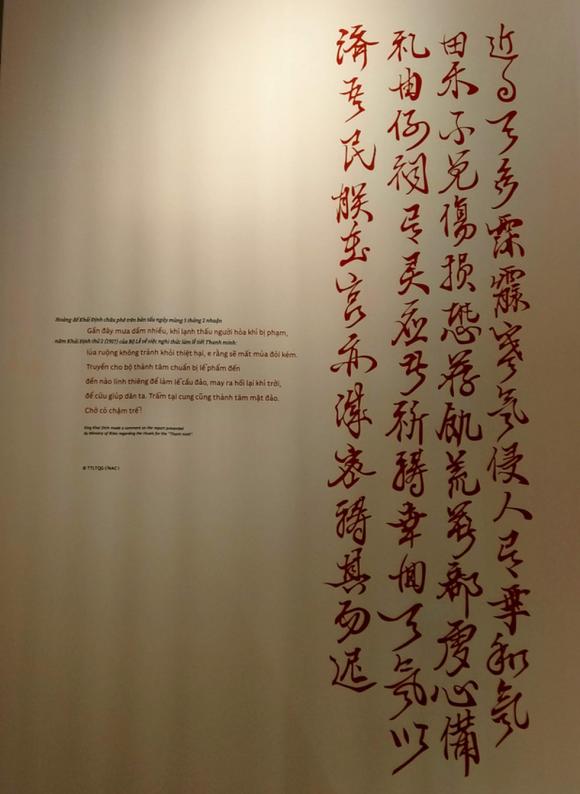 近日天多霖霢寒气侵人有乖和氣
田禾不免傷損恐荐飢荒著部虔心備
礼由何祠有灵应者祈禱幸回天氣以
濟吾民朕在宮亦密禱其勿遲
Hoàng đế Khải Định châu phê trên bản tấu ngày mùng 5 tháng 2 nhuận
Gần đây mưa dầm nhiều, khí lạnh thấu người hòa khí bị phạm,
năm Khải Định thứ 2 (1917) của Bộ Lễ về việc nghi thức làm lễ tiết Thanh minh:
lúa ruộng không tránh khỏi thiệt hại, e rằng sẽ mất mùa đói kém.
Truyền cho bộ thành tâm chuẩn bị lễ phẩm đến
đền nào linh thiêng để làm lễ cầu đảo, may ra hồi lại khí trời,
để cứu giúp dân ta. Trẫm tại cung cũng thành tâm mật đảo.
Chớ có chậm trễ!
King Khai Dinh made a comment on the report presented
by Ministry of Rites regarding the rituals for the "Thanh minh".
© TTLTQG I (NAC I)